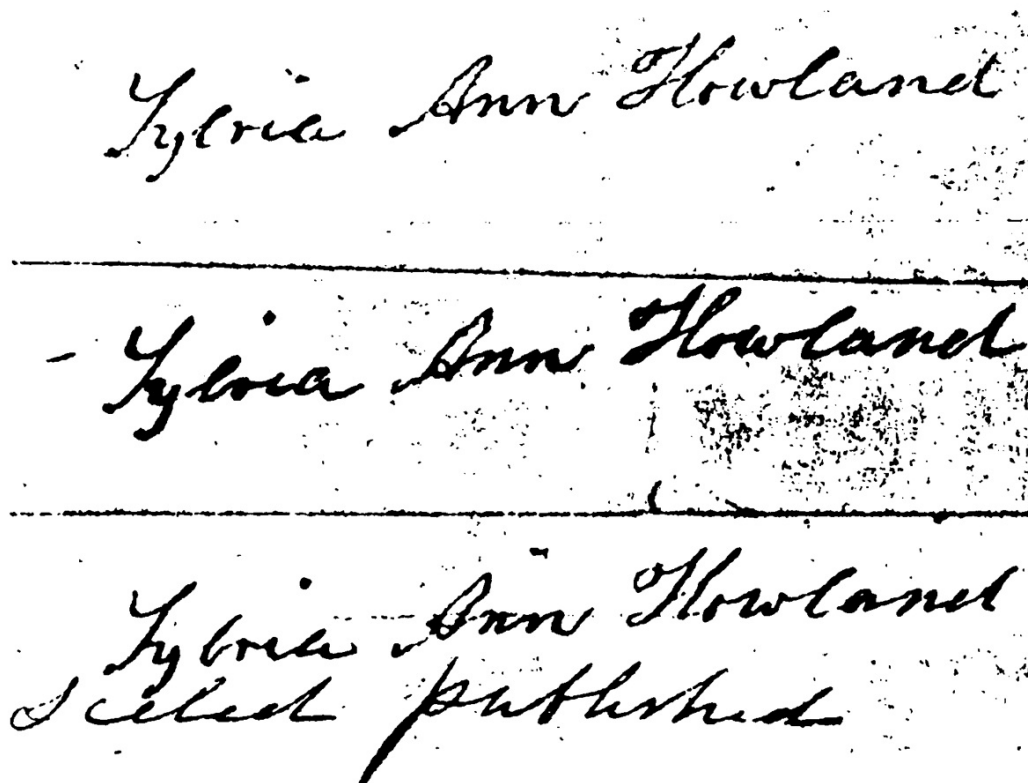 Sylvia Ann Howland
Sylvia Ann Howland
Sylvia Ann Howland
Sealed published